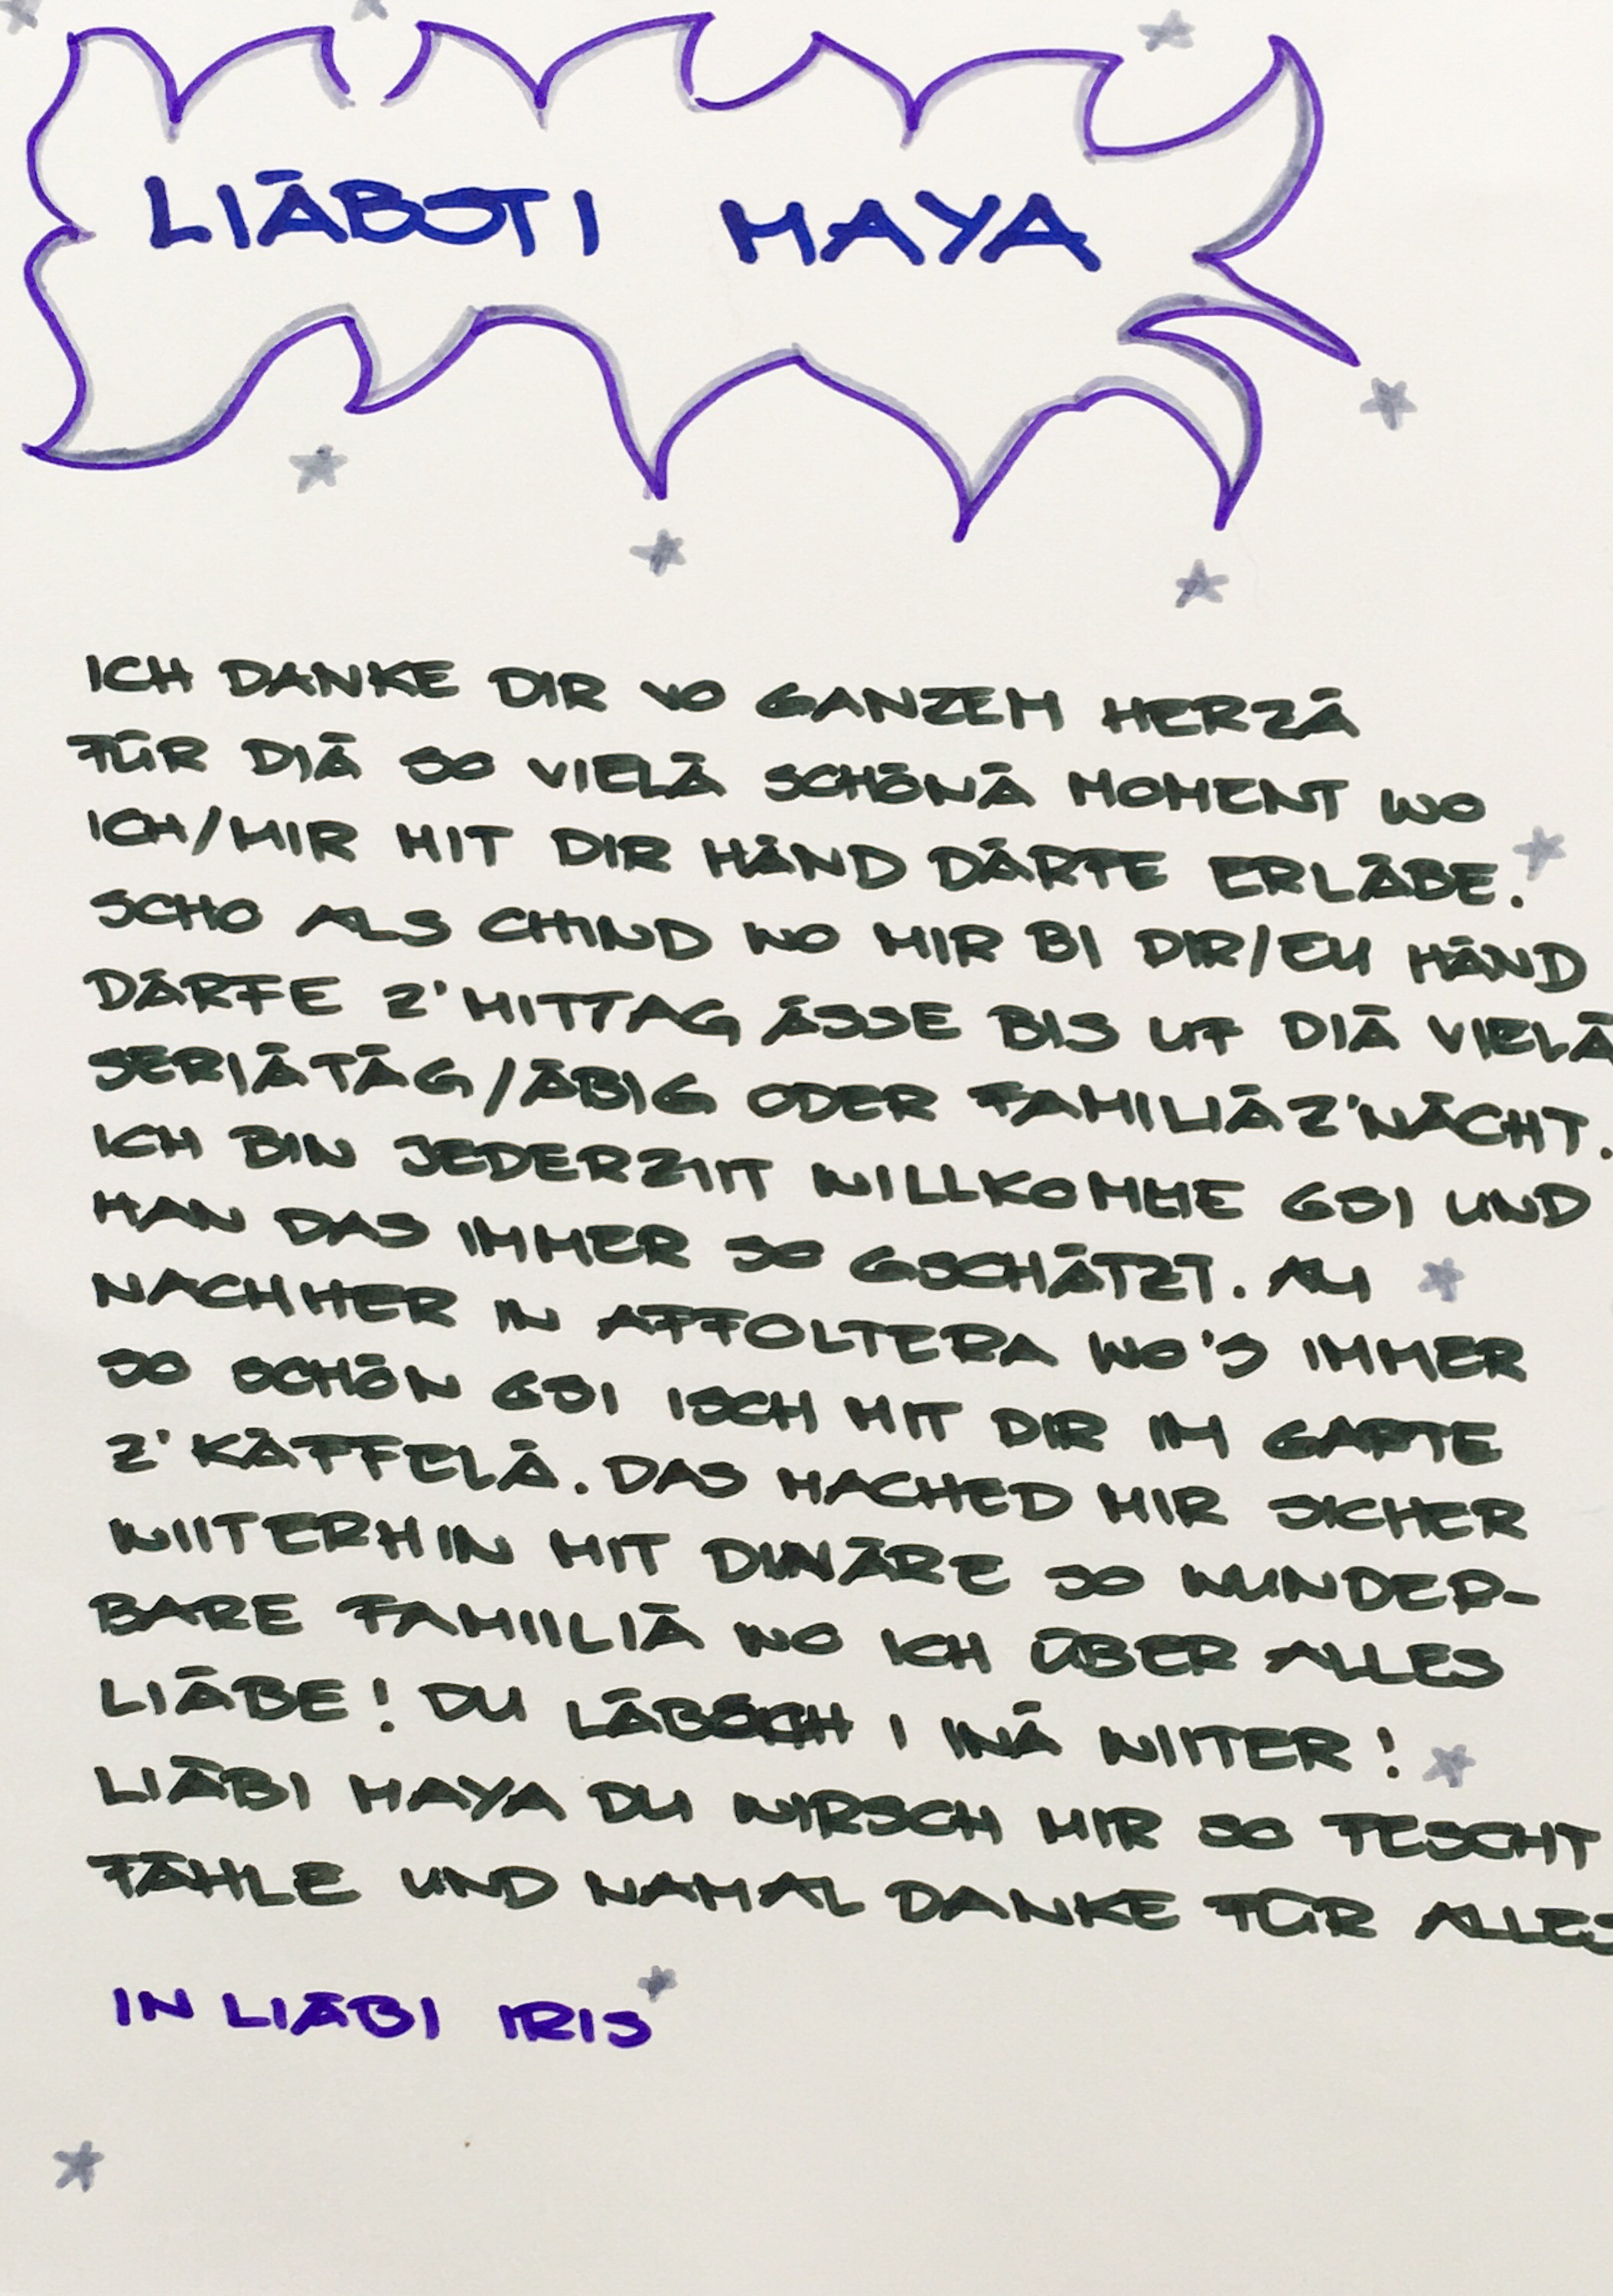 LIÄBSTI MAYA
ICH DANKE DIR VO GANZEM HERZÄ
FÜR DIÄ SO VIELÄ SCHÖNÄ MOMENT WO
ICH/MIR MIT DIR HÄND DÄRFE ERLÄBE.
SCHO ALS CHIND WO MIR BI DIR/EU HÄND
DÄRFE Z'MITTAG ÄSSE BIS UF DIÄ VIELÄ
SERIÄTÄG/ÄBIG ODER FAMILIÄZ'NÄCHT.
ICH BIN JEDERZIIT WILLKOMME GSI UND
HAN DAS IMMER SO GSCHÄTZT. AU
NACHHER IN AFFOLTERA WO'S IMMER
SO SCHÖN GSI ISCH MIT DIR IM GARTE
Z'KÄFFELÄ. DAS MACHED MIR SICHER
WIITERHIN MIT DINÄRE SO WUNDER-
BARE FAMIILIÄ WO ICH ÜBER ALLES
LIÄBE! DU LÄBSCH I INÄ WIITER!
LIÄBI MAYA DU WIRSCH MIR SO FESCHT
FÄHLE UND NAMAL DANKE FÜR ALLES
IN LIÄBI IRIS